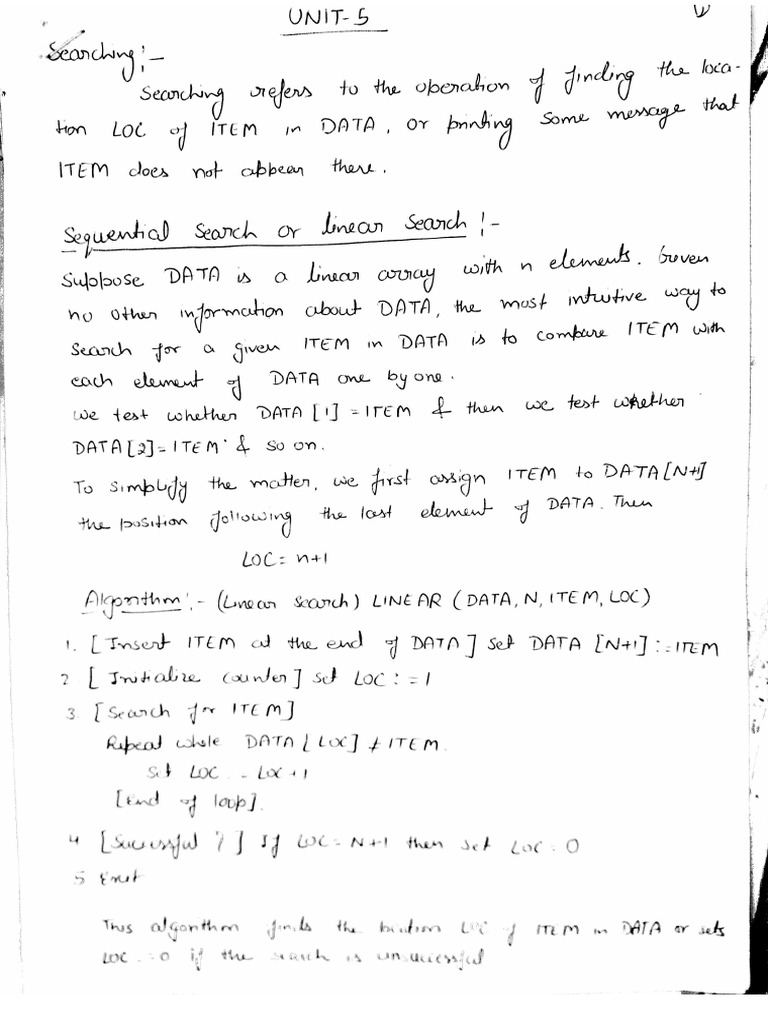 UNIT-5
Searching:-
Searching refers to the operation of finding the loca-
tion LOC of ITEM in DATA, or printing some message that
ITEM does not appear there.
Sequential Search or linear Search :-
Suppose DATA is a linear array with n elements. Given
no other information about DATA, the most intuitive way to
search for a given ITEM in DATA is to compare ITEM with
each element of DATA one by one.
we test whether DATA [1] = ITEM & then we test whether
DATA[2] = ITEM & so on.
To simplify the matter, we first assign ITEM to DATA[N+1]
the position following the last element of DATA. Then
LOC = n+1
Algorithm :- (Linear search) LINEAR (DATA, N, ITEM, LOC)
1. [Insert ITEM at the end of DATA] set DATA [N+1] := ITEM
2 [Initialize counter] set LOC := 1
3. [Search for ITEM]
Repeat while DATA[LOC] ≠ ITEM.
Set LOC = LOC + 1
[End of loop].
4 [Successful ?] If LOC = N+1 then set LOC = 0
5 Exit
This algorithm finds the location LOC of ITEM in DATA or sets
LOC := 0 if the search is unsuccessful